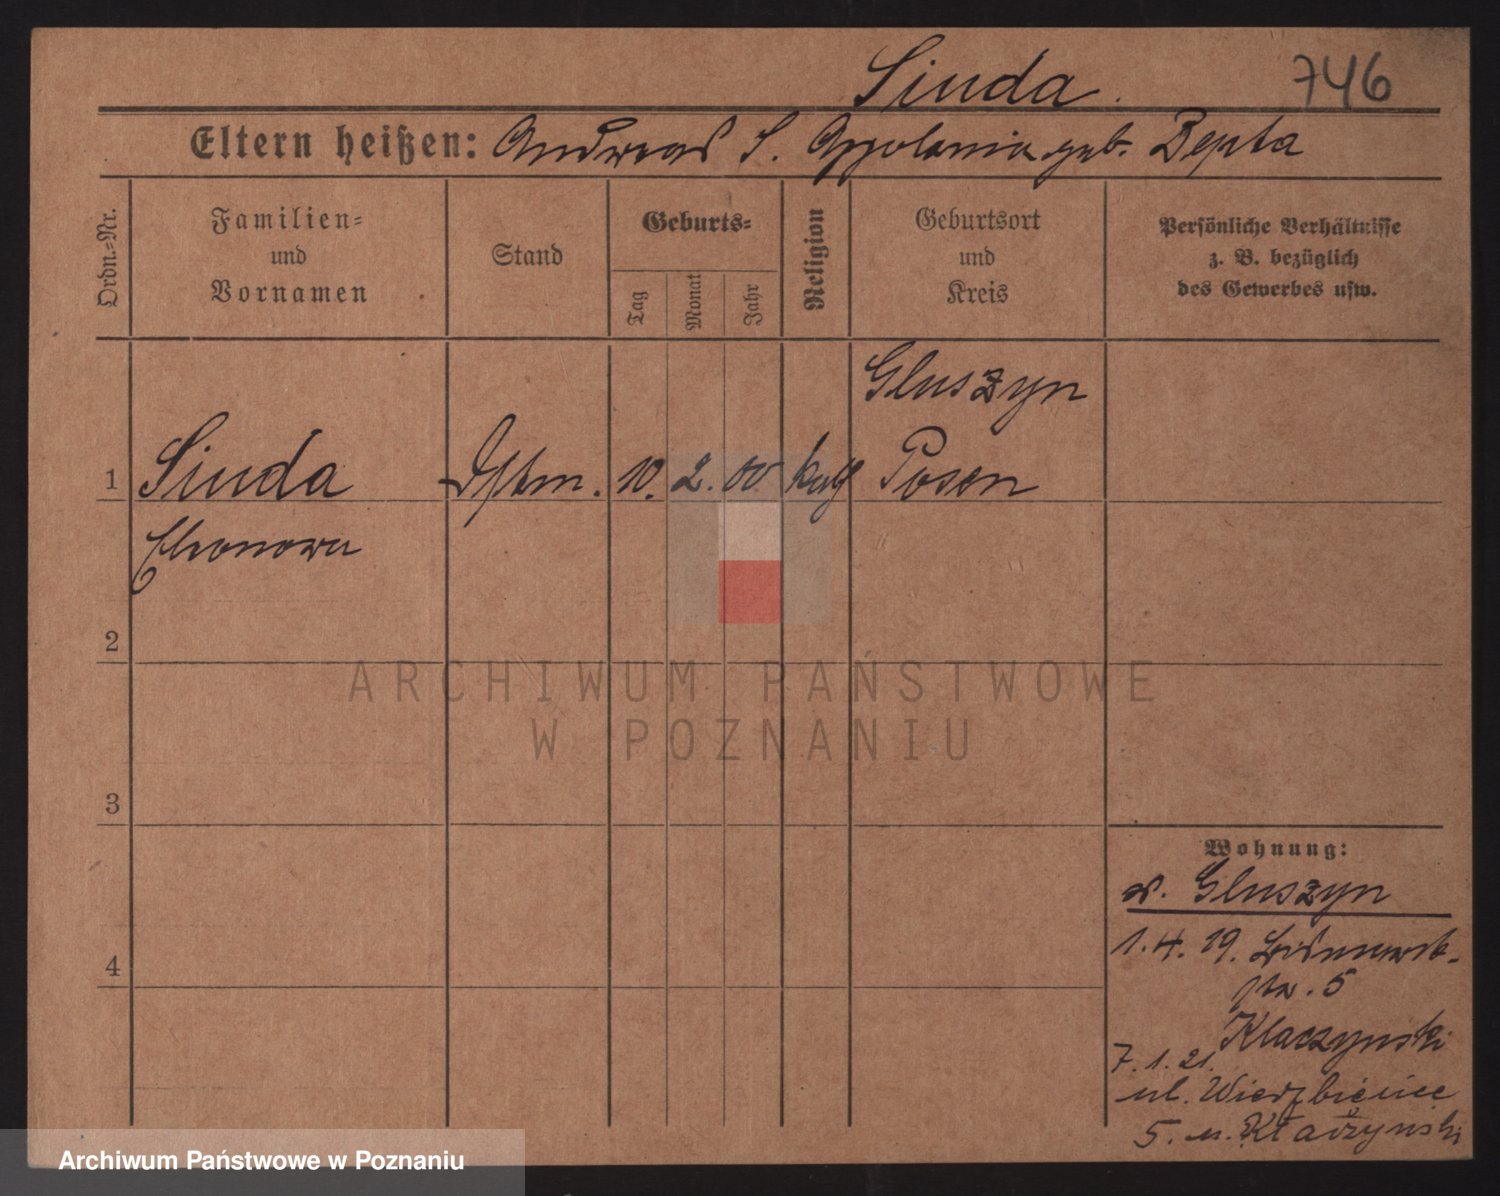 Sinda.
746
Eltern heißen: Andreas S. Appolonia geb. Bepta
Ordn.=Nr.
Familien=
und
Vornamen
Stand
Geburts=
Tag
Monat
Jahr
Religion
Geburtsort
und
Kreis
Persönliche Verhältnisse
z. B. bezüglich
des Gewerbes usw.
Gluszyn
1 Sinda Dstm. 10. 2. 00 kath Posen
2
3
4
Wohnung:
v. Gluszyn
1. 4. 19. Bismarck-
str. 5
Klaczynski
7. 1. 21.
ul. Wierzbiecice
5. u. Klaczynski
ARCHIWUM PAŃSTWOWE
W POZNANIU
Archiwum Państwowe w Poznaniu